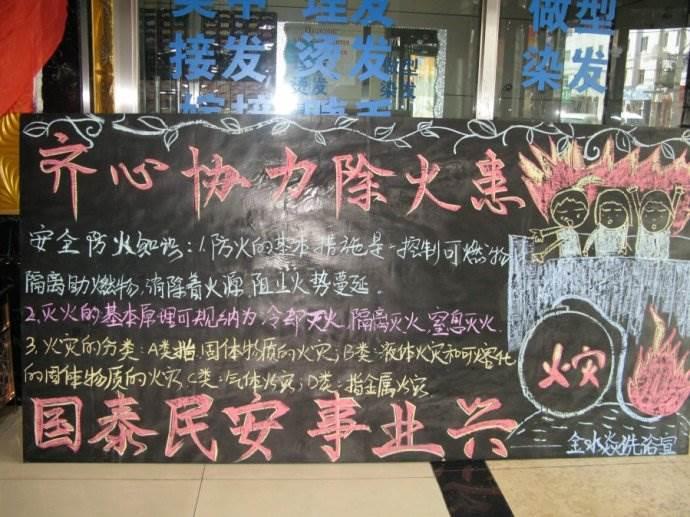 理发
做型
接发
烫发
染发
型
烫发
染发
齐心协力除火患
安全防火知识:1.防火的基本措施是:控制可燃物
隔离助燃物,消除着火源,阻止火势蔓延。
2.灭火的基本原理可规纳为,冷却灭火,隔离灭火,窒息灭火
3.火灾的分类:A类指:固体物质的火灾;B类:液体火灾和可熔化
的固体物质的火灾,C类:气体火灾;D类:指金属火灾
火灾
国泰民安事业兴
金水焱洗浴宫